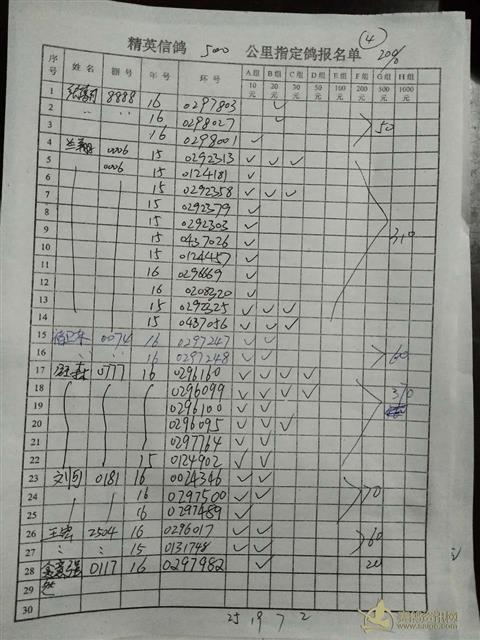 精英信鸽 5000 公里指定鸽报名单 ④ 20%
序号 姓名 棚号 年号 环号 A组10元 B组20元 C组30元 D组50元 E组100元 F组200元 G组300元 H组1000元
1 8888 16 0297803 ✓
2 〃 〃 16 0298027 ✓ 50
3 16 0298001 ✓
4 兰翔 0006 15 0292313 ✓ ✓ ✓
5 0006 15 0124181 ✓
6 15 0292358 ✓ ✓ ✓
7 15 0292379 ✓
8 15 0292303 ✓
9 15 0437026 ✓ 310
10 15 0124457 ✓
11 16 0296669 ✓
12 16 0208320 ✓
13 15 0292325 ✓ ✓ ✓
14 15 0437056 ✓ ✓ ✓
15 0074 16 0297247 ✓ ✓
16 〃 〃 16 0297248 ✓ ✓ 60
17 0777 16 0296160 ✓ ✓ ✓ ✓
18 0296099 ✓ ✓ ✓ ✓ 370
19 0296100 ✓ ✓
20 0296095 ✓ ✓ ✓
21 0297764 ✓ ✓
22 15 0124902 ✓ ✓
23 刘可 0181 16 0024346 ✓ ✓
24 16 0297500 ✓ ✓ 70
25 16 0297489 ✓
26 王宏 2504 16 0296017 ✓ ✓
27 〃 〃 15 0131748 ✓ ✓ 60
28 0117 16 0297982 ✓ 20
29
30
25 19 7 2